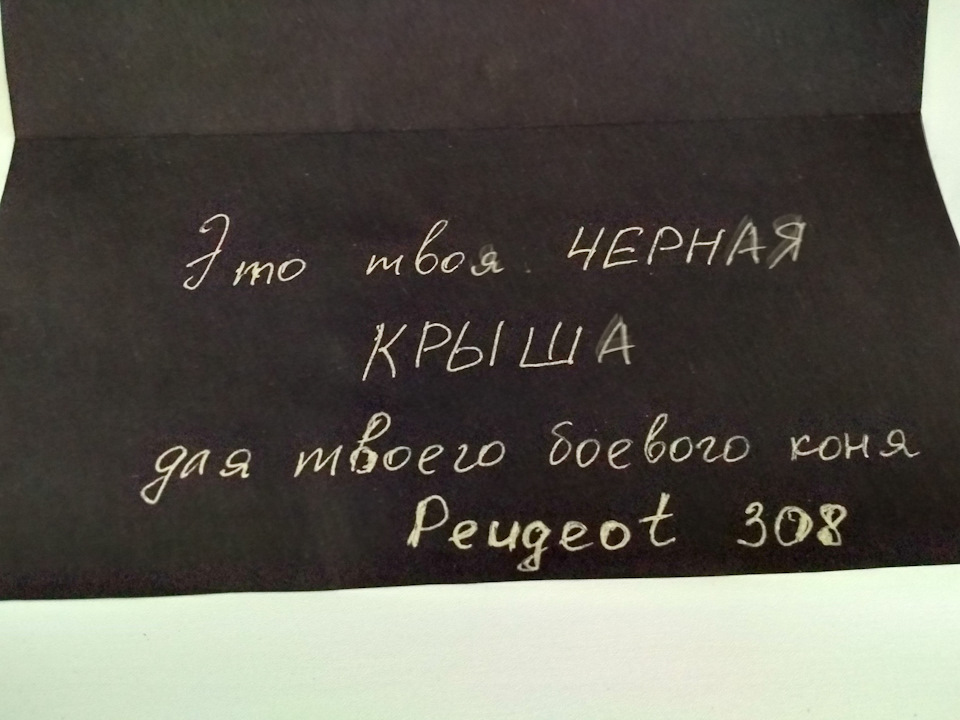 Это твоя ЧЕРНАЯ
КРЫША
для твоего боевого коня
Peugeot 308